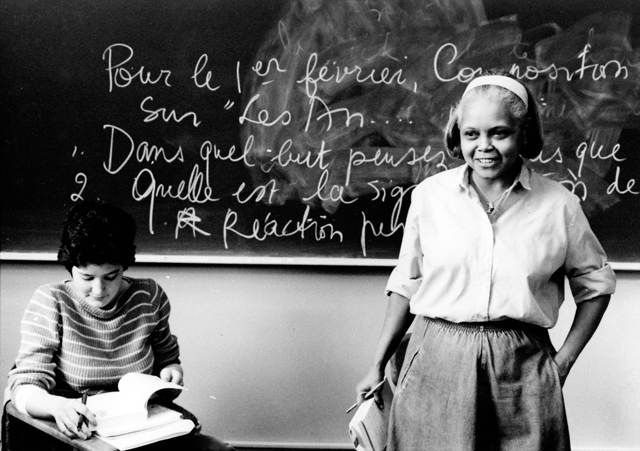 Pour le 1er février, Composition
Sur "Les An....
1. Dans quel but pensez que
2 Quelle est la de
Réaction